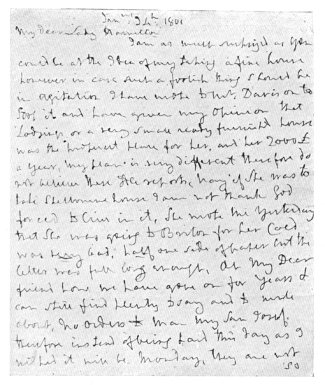 Jany 24th 1801
My dear Lady Hamilton
I am as much surprized as you
could be at the Idea of my taking a fine house
however in case such a foolish thing should be
in agitation I have wrote to Mr. Davison to
Stop it and have given my Opinion that
Lodgings or a very small ready furnished house
was the best here for her, and her 2000£
a year, my plan is very different therefore do
not believe these reports, nay if she was to
take Shelbourne house I am not thank God
forced to live in it, She wrote me Yesterday
that She was going to Brighton for her Cold
was very bad, half one side of paper but the
letter was full long enough, Ah My Dear
friend how we have gone on for Years &
can still find plenty to say and to write
about, No orders to Man my San Josef
therefore instead of being paid This day as I
wished it will be Monday, they are not
So